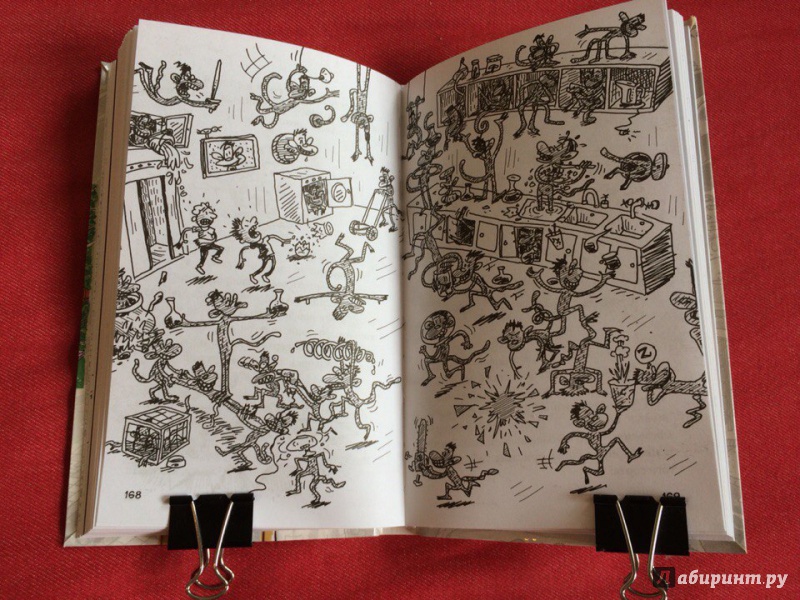 Z
168
169
Лабиринт.ру